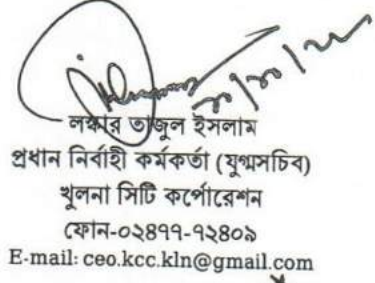 লস্কার তাজুল ইসলাম
প্রধান নির্বাহী কর্মকর্তা (যুগ্মসচিব)
খুলনা সিটি কর্পোরেশন
ফোন-০২৪৭৭-৭২৪০৯
E-mail: ceo.kcc.kln@gmail.com